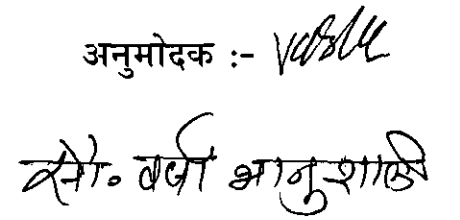 अनुमोदक :-
सौ. वर्षा भानुशाली